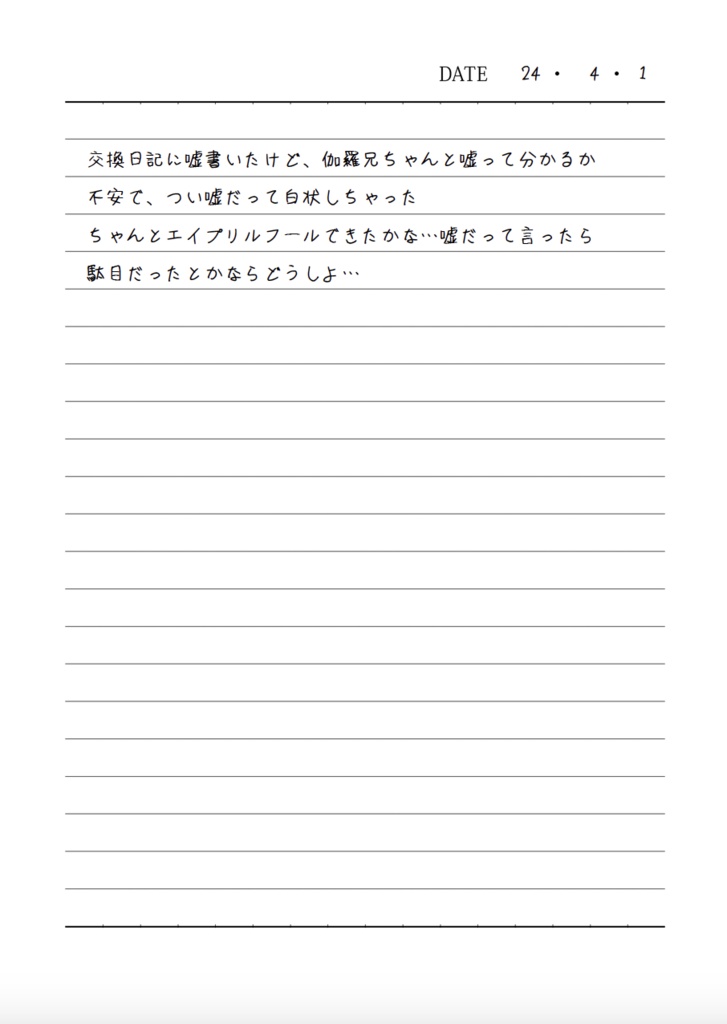 DATE 24・ 4・ 1
交換日記に嘘書いたけど、伽羅兄ちゃんと嘘って分かるか
不安で、つい嘘だって白状しちゃった
ちゃんとエイプリルフールできたかな…嘘だって言ったら
駄目だったとかならどうしよ…